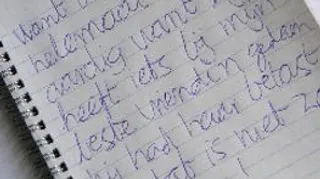 want
helemaal
aardig want
heeft iets bij mijn
beste vriendin gedaan
hij had haar betast
dat is niet zo